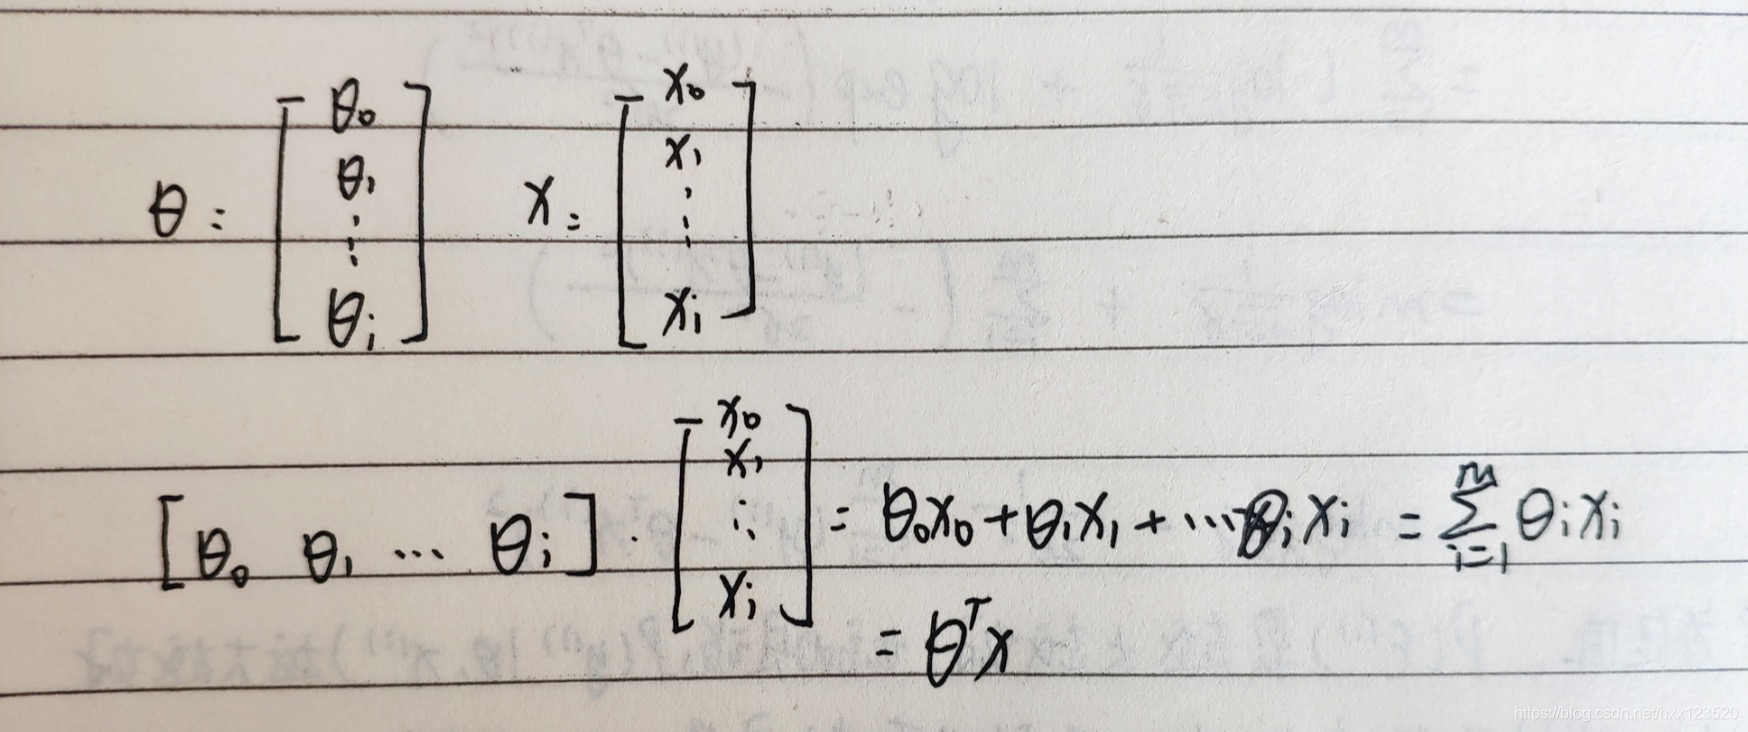 θ = [θ₀ θ₁ ⋮ θᵢ] X = [x₀ x₁ ⋮ xᵢ]
[θ₀ θ₁ ⋯ θᵢ] · [x₀ x₁ ⋮ xᵢ] = θ₀x₀ + θ₁x₁ + ⋯ θᵢxᵢ = ∑ᵢ₌₁ᵐ θᵢxᵢ
= θᵀx
https://blog.csdn.net/hxx123520